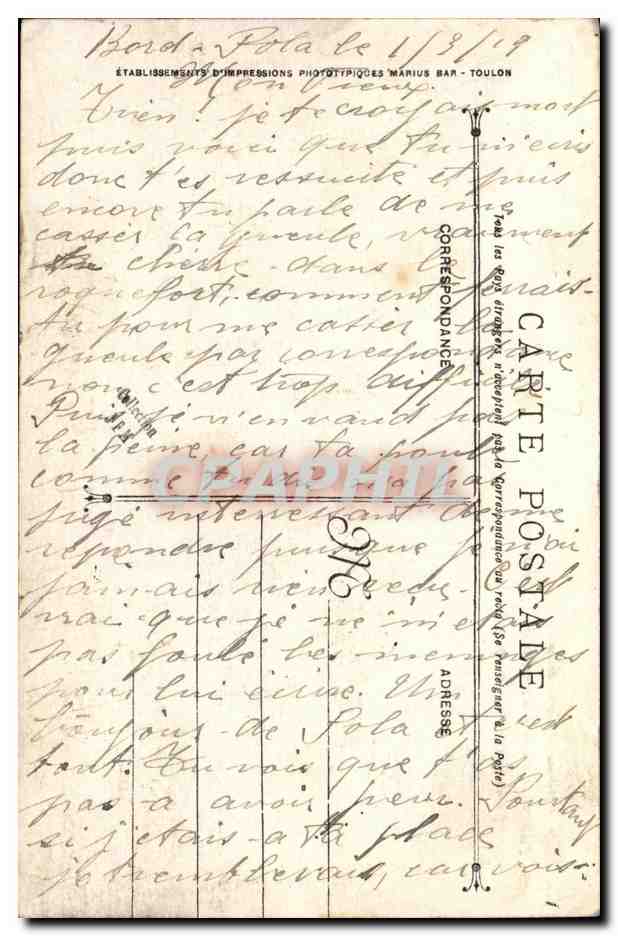 Bord - Pola le 1/3/19
ÉTABLISSEMENTS D'IMPRESSIONS PHOTOTYPIQUES MARIUS BAR - TOULON
Mon Vieux.
Tien! je te croyais mort
puis voici que tu m'ecris
donc t'es ressucité et puis
encore tu parle de me
casser la gueule, vraiment
cherre dans le
roquefort, comment ferais-
tu pour me casser la
gueule par correspondance
non c'est trop difficile
Puis je n'en vaud pas
la peine, car ta poule
comme tu dis n'a pas
jugé interressant de me
répondre puisque je n'ai
jamais rien reçu. C'est
vrai que je ne m'étais
pas foulé les meninges
pour lui écrire. Un
bonjour de Pola c'est
tout. Tu vois que t'as
pas a avoir peur. Pourtant
si j'etais a ta place
je tremblerais, car vois-
CARTE POSTALE
Tous les Pays étrangers n'acceptent pas la Correspondance au recto (Se renseigner à la Poste)
CORRESPONDANCE
ADRESSE
M
Collection
CPAPHIL